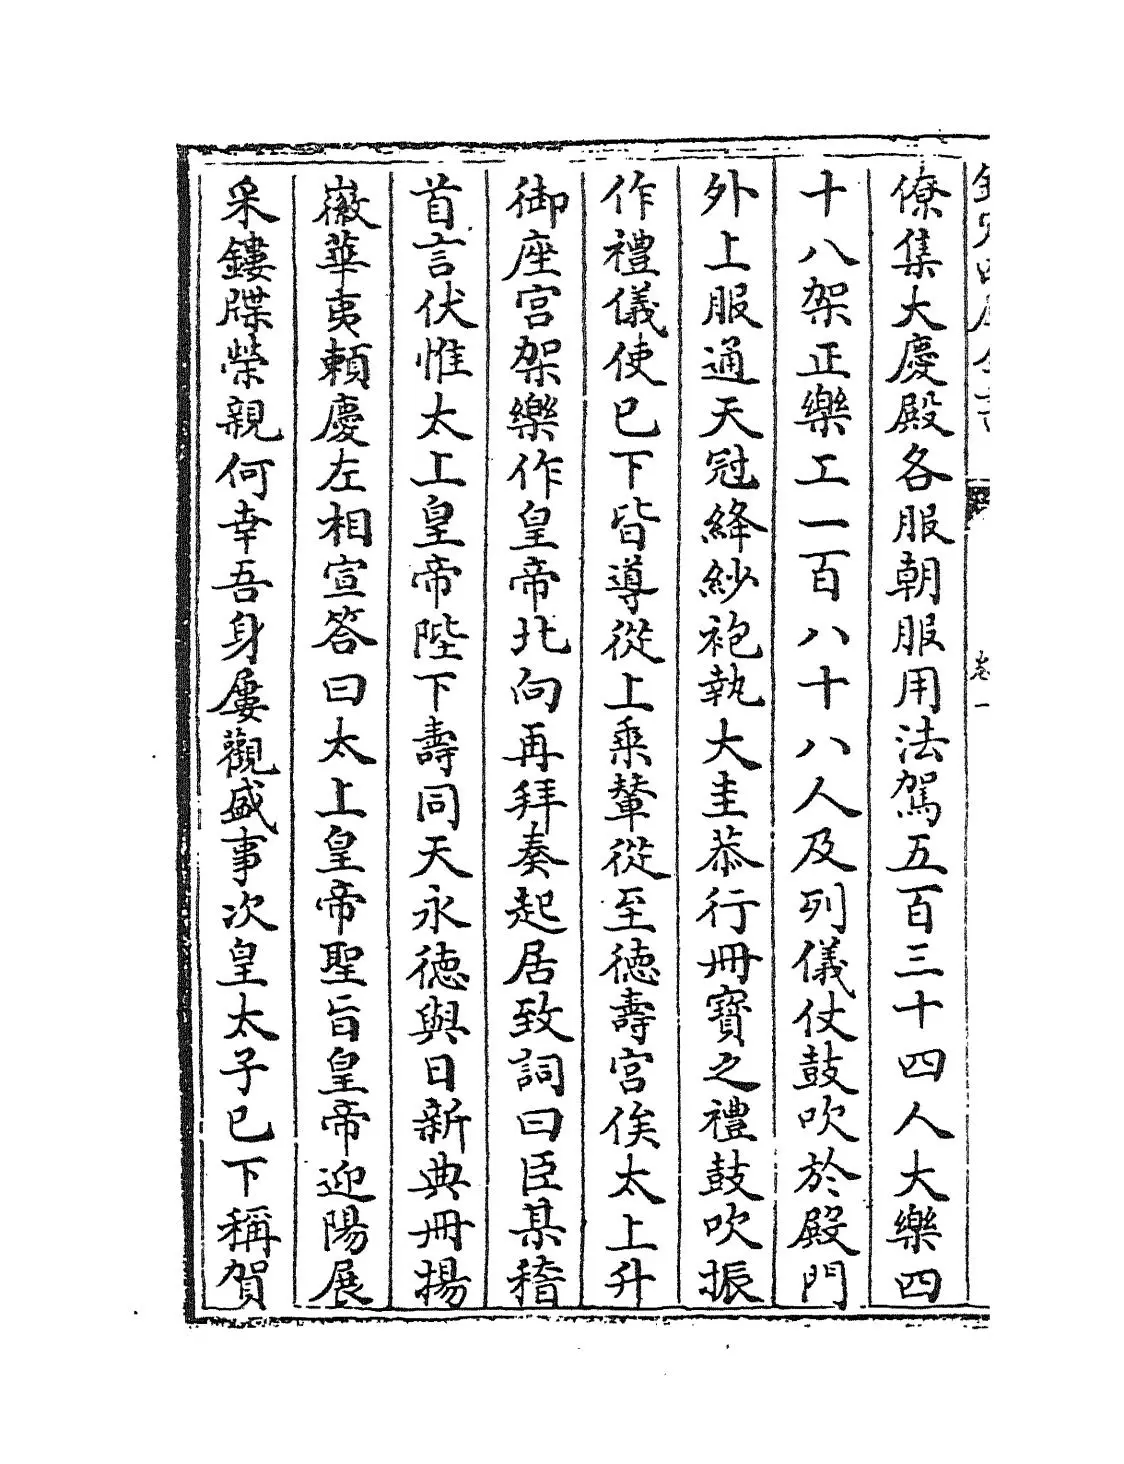 僚集大慶殿各服朝服用法駕五百三十四人大樂四
十八架正樂工一百八十八人及列儀仗鼓吹於殿門
外上服通天冠絳紗袍執大圭恭行冊寶之禮鼓吹振
作禮儀使已下皆導從上乘輦從至徳壽宮俟太上升
御座宮架樂作皇帝北向再拜奏起居致詞曰臣某稽
首言伏惟太上皇帝陛下壽同天永徳與日新典冊揚
徽華夷頼慶左相宣答曰太上皇帝聖旨皇帝迎陽展
采鏤牒榮親何幸吾身屢觀盛事次皇太子已下稱賀